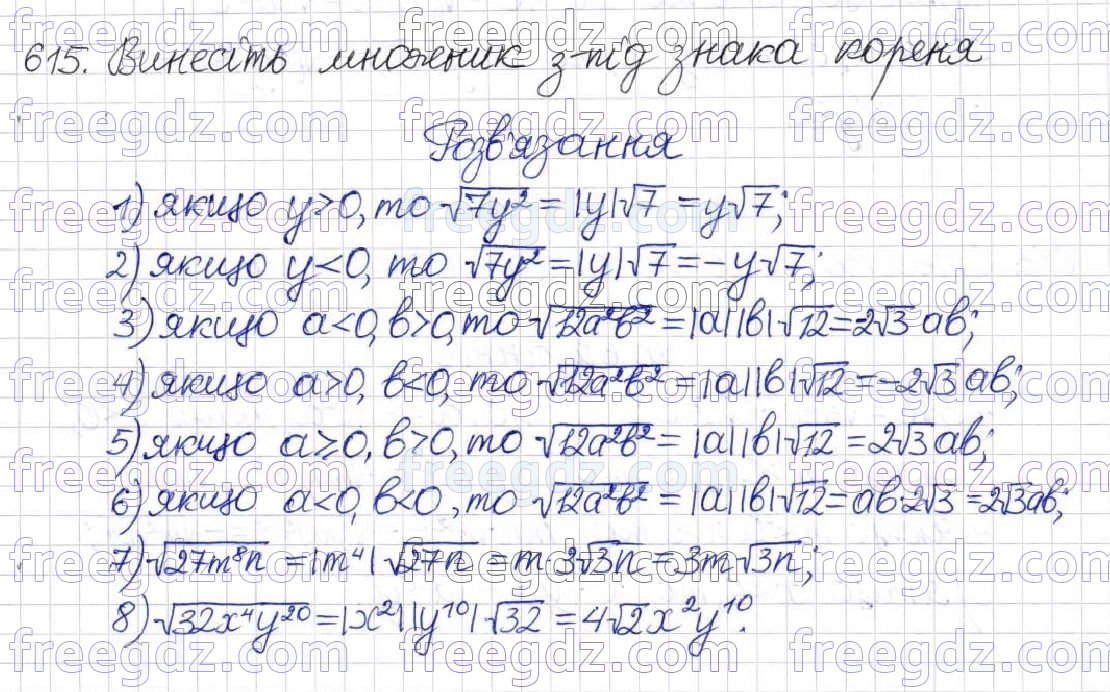 615. Винесіть множник з-під знака кореня
Розв'язання
1) якщо y>0, то √7y² = |y|√7 = y√7;
2) якщо y<0, то √7y² = |y|√7 = -y√7;
3) якщо a<0, b>0, то √12a²b² = |a||b|√12 = 2√3 ab;
4) якщо a>0, b<0, то √12a²b² = |a||b|√12 = -2√3 ab;
5) якщо a≥0, b>0, то √12a²b² = |a||b|√12 = 2√3 ab;
6) якщо a<0, b<0, то √12a²b² = |a||b|√12 = ab·2√3 = 2√3ab;
7) √27m⁸n = |m⁴| √27n = m·3√3n = 3m√3n;
8) √32x⁴y²⁰ = |x²||y¹⁰|√32 = 4√2x²y¹⁰.
freegdz.com